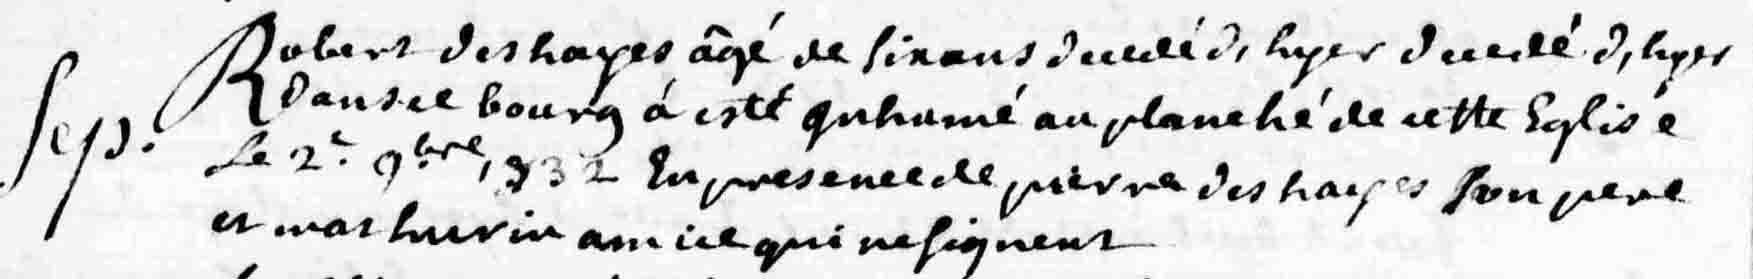 Sep.
Robert deshayes âgé de sixans decedé d'hyer decedé d'hyer
dans ce bourg á esté Enhumé au planché de cette Eglisé
Le 2e 9bre 1732 En presence de pierre deshayes son pere
et mathurin amice qui ne signent